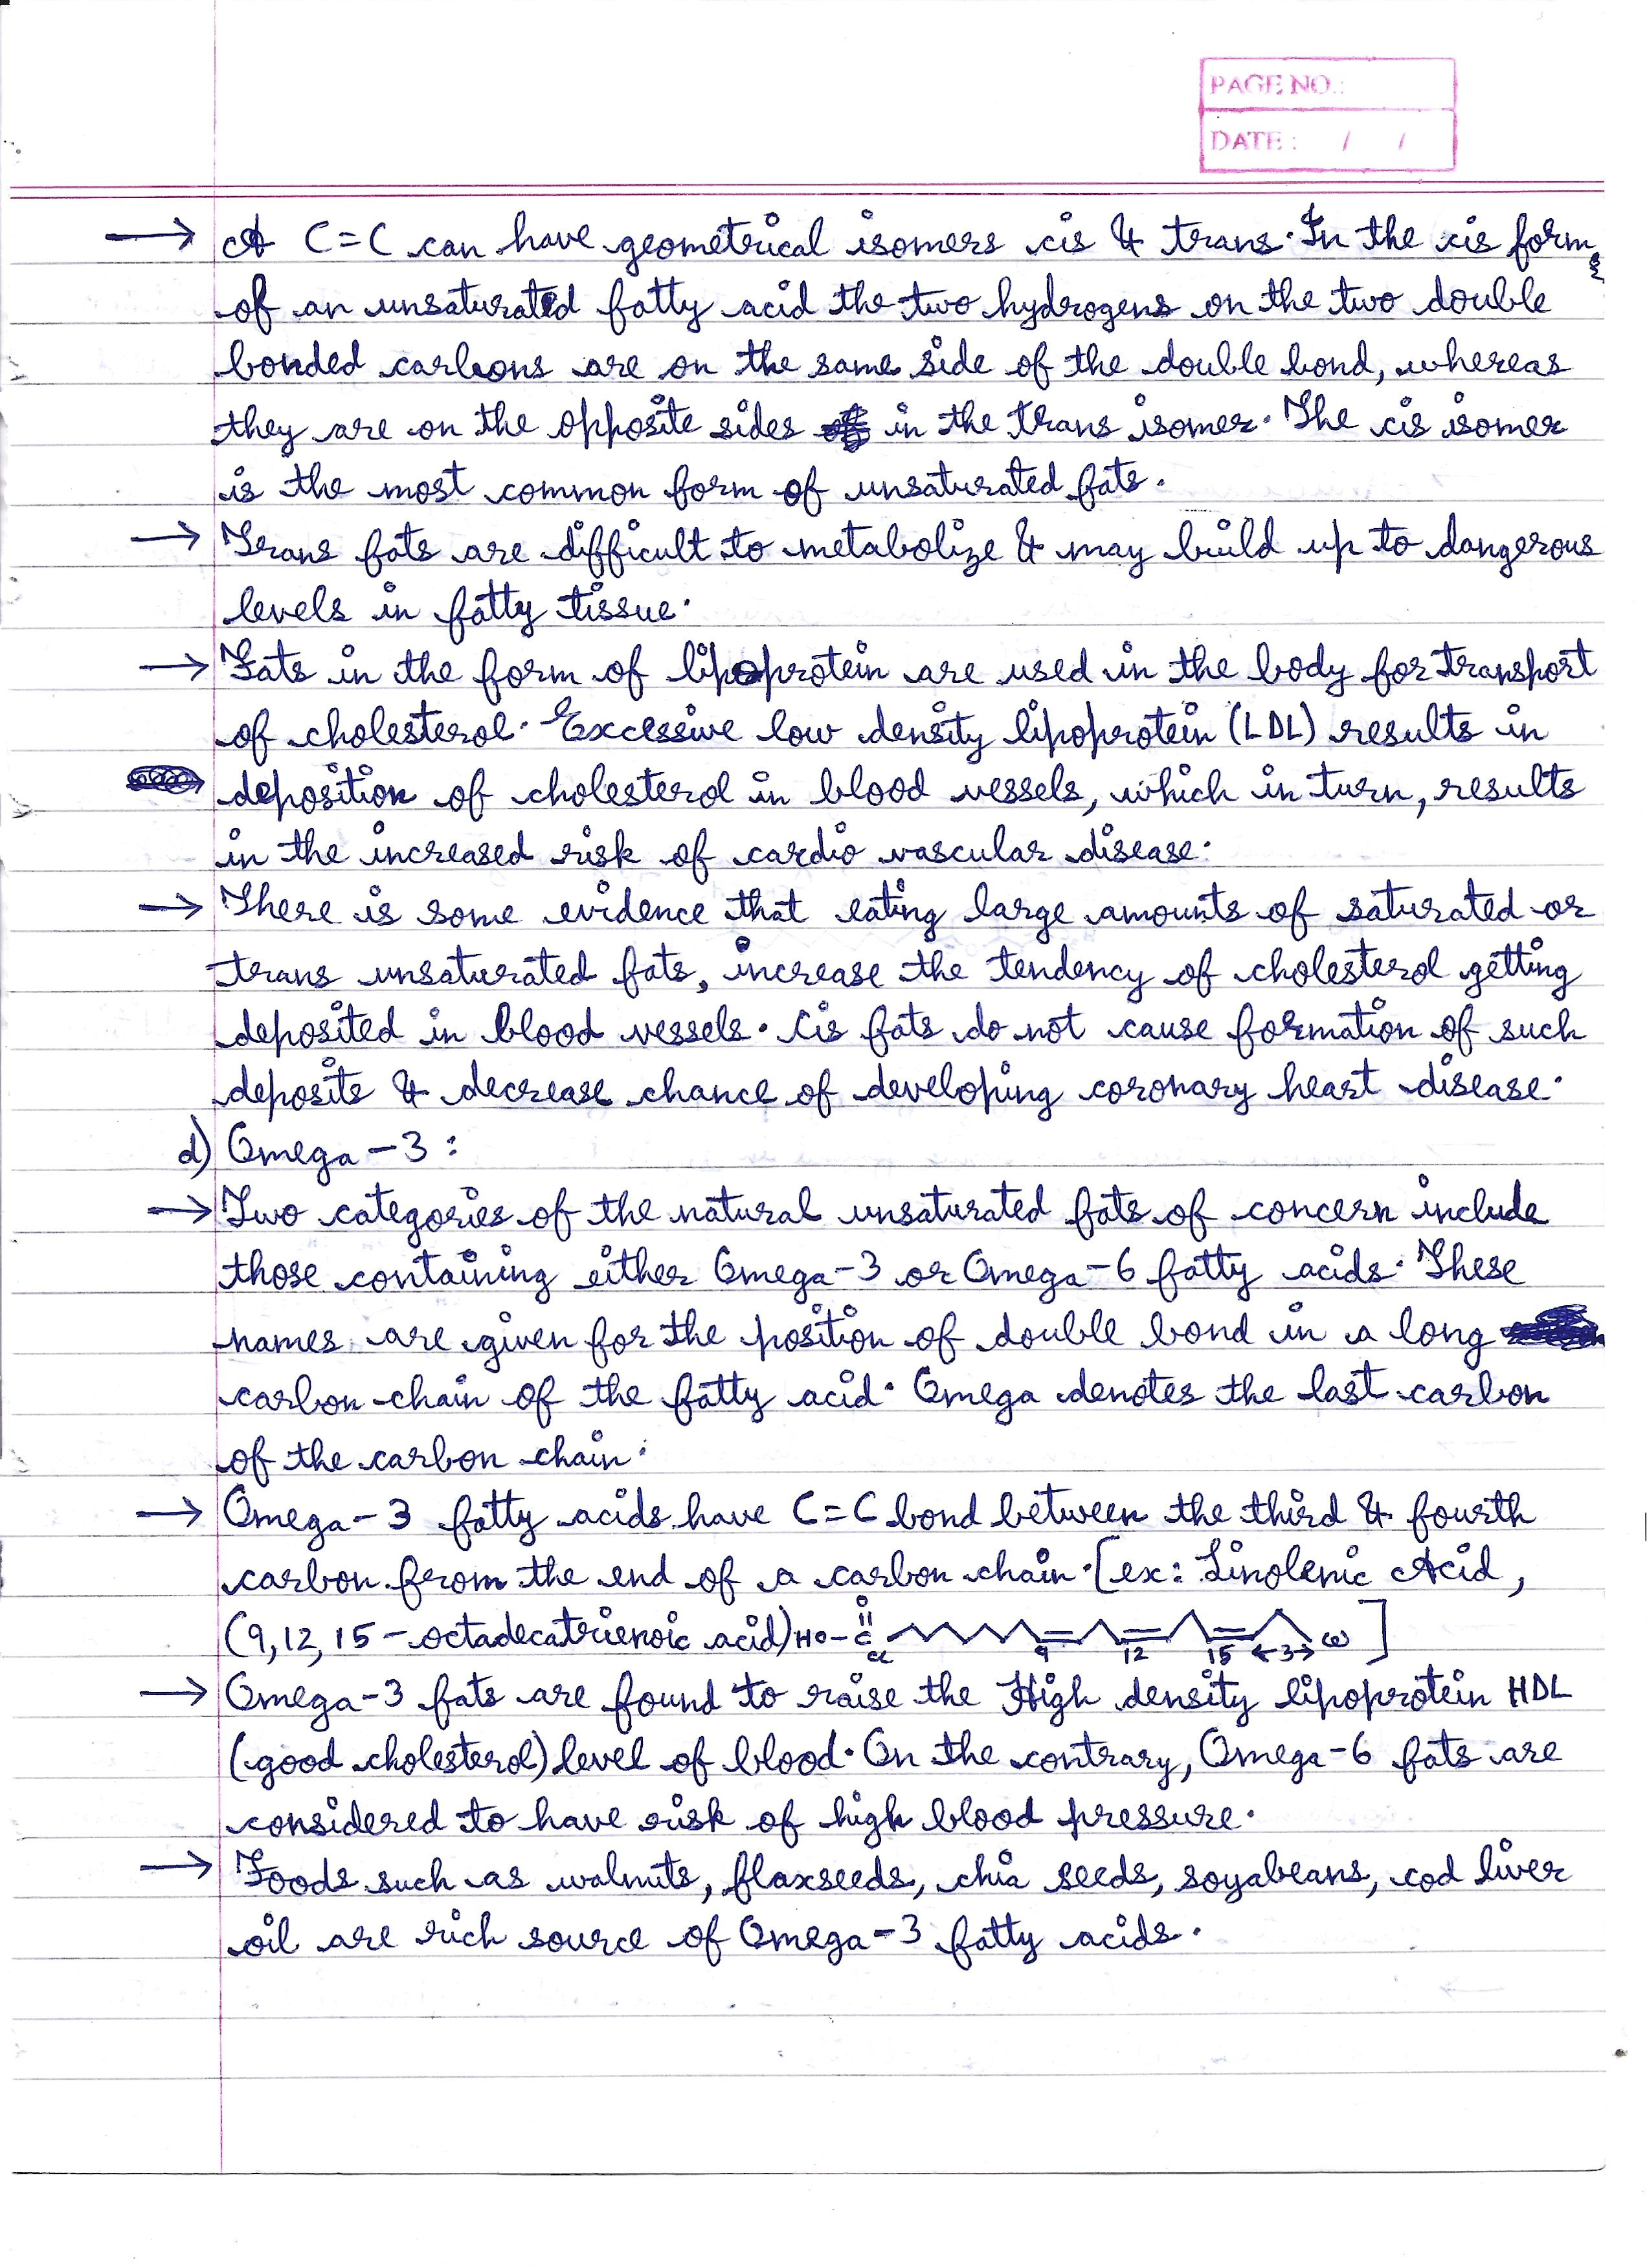 PAGE NO.:
DATE: / /
→ A C=C can have geometrical isomers cis & trans. In the cis form
of an unsaturated fatty acid the two hydrogens on the two double
bonded carbons are on the same side of the double bond, whereas
they are on the opposite sides in the trans isomer. The cis isomer
is the most common form of unsaturated fats.
→ Trans fats are difficult to metabolize & may build up to dangerous
levels in fatty tissue.
→ Fats in the form of lipoprotein are used in the body for transport
of cholesterol. Excessive low density lipoprotein (LDL) results in
deposition of cholesterol in blood vessels, which in turn, results
in the increased risk of cardio vascular disease.
→ There is some evidence that eating large amounts of saturated or
trans unsaturated fats, increase the tendency of cholesterol getting
deposited in blood vessels. Cis fats do not cause formation of such
deposits & decrease chance of developing coronary heart disease.
d) Omega-3:
→ Two categories of the natural unsaturated fats of concern include
those containing either Omega-3 or Omega-6 fatty acids. These
names are given for the position of double bond in a long
carbon chain of the fatty acid. Omega denotes the last carbon
of the carbon chain.
→ Omega-3 fatty acids have C=C bond between the third & fourth
carbon from the end of a carbon chain. [ex: Linolenic Acid,
(9,12,15-octadecatrienoic acid) HO-C=O α 9 12 15 ←3→ ω ]
→ Omega-3 fats are found to raise the High density lipoprotein HDL
(good cholesterol) level of blood. On the contrary, Omega-6 fats are
considered to have risk of high blood pressure.
→ Foods such as walnuts, flaxseeds, chia seeds, soyabeans, cod liver
oil are rich source of Omega-3 fatty acids.